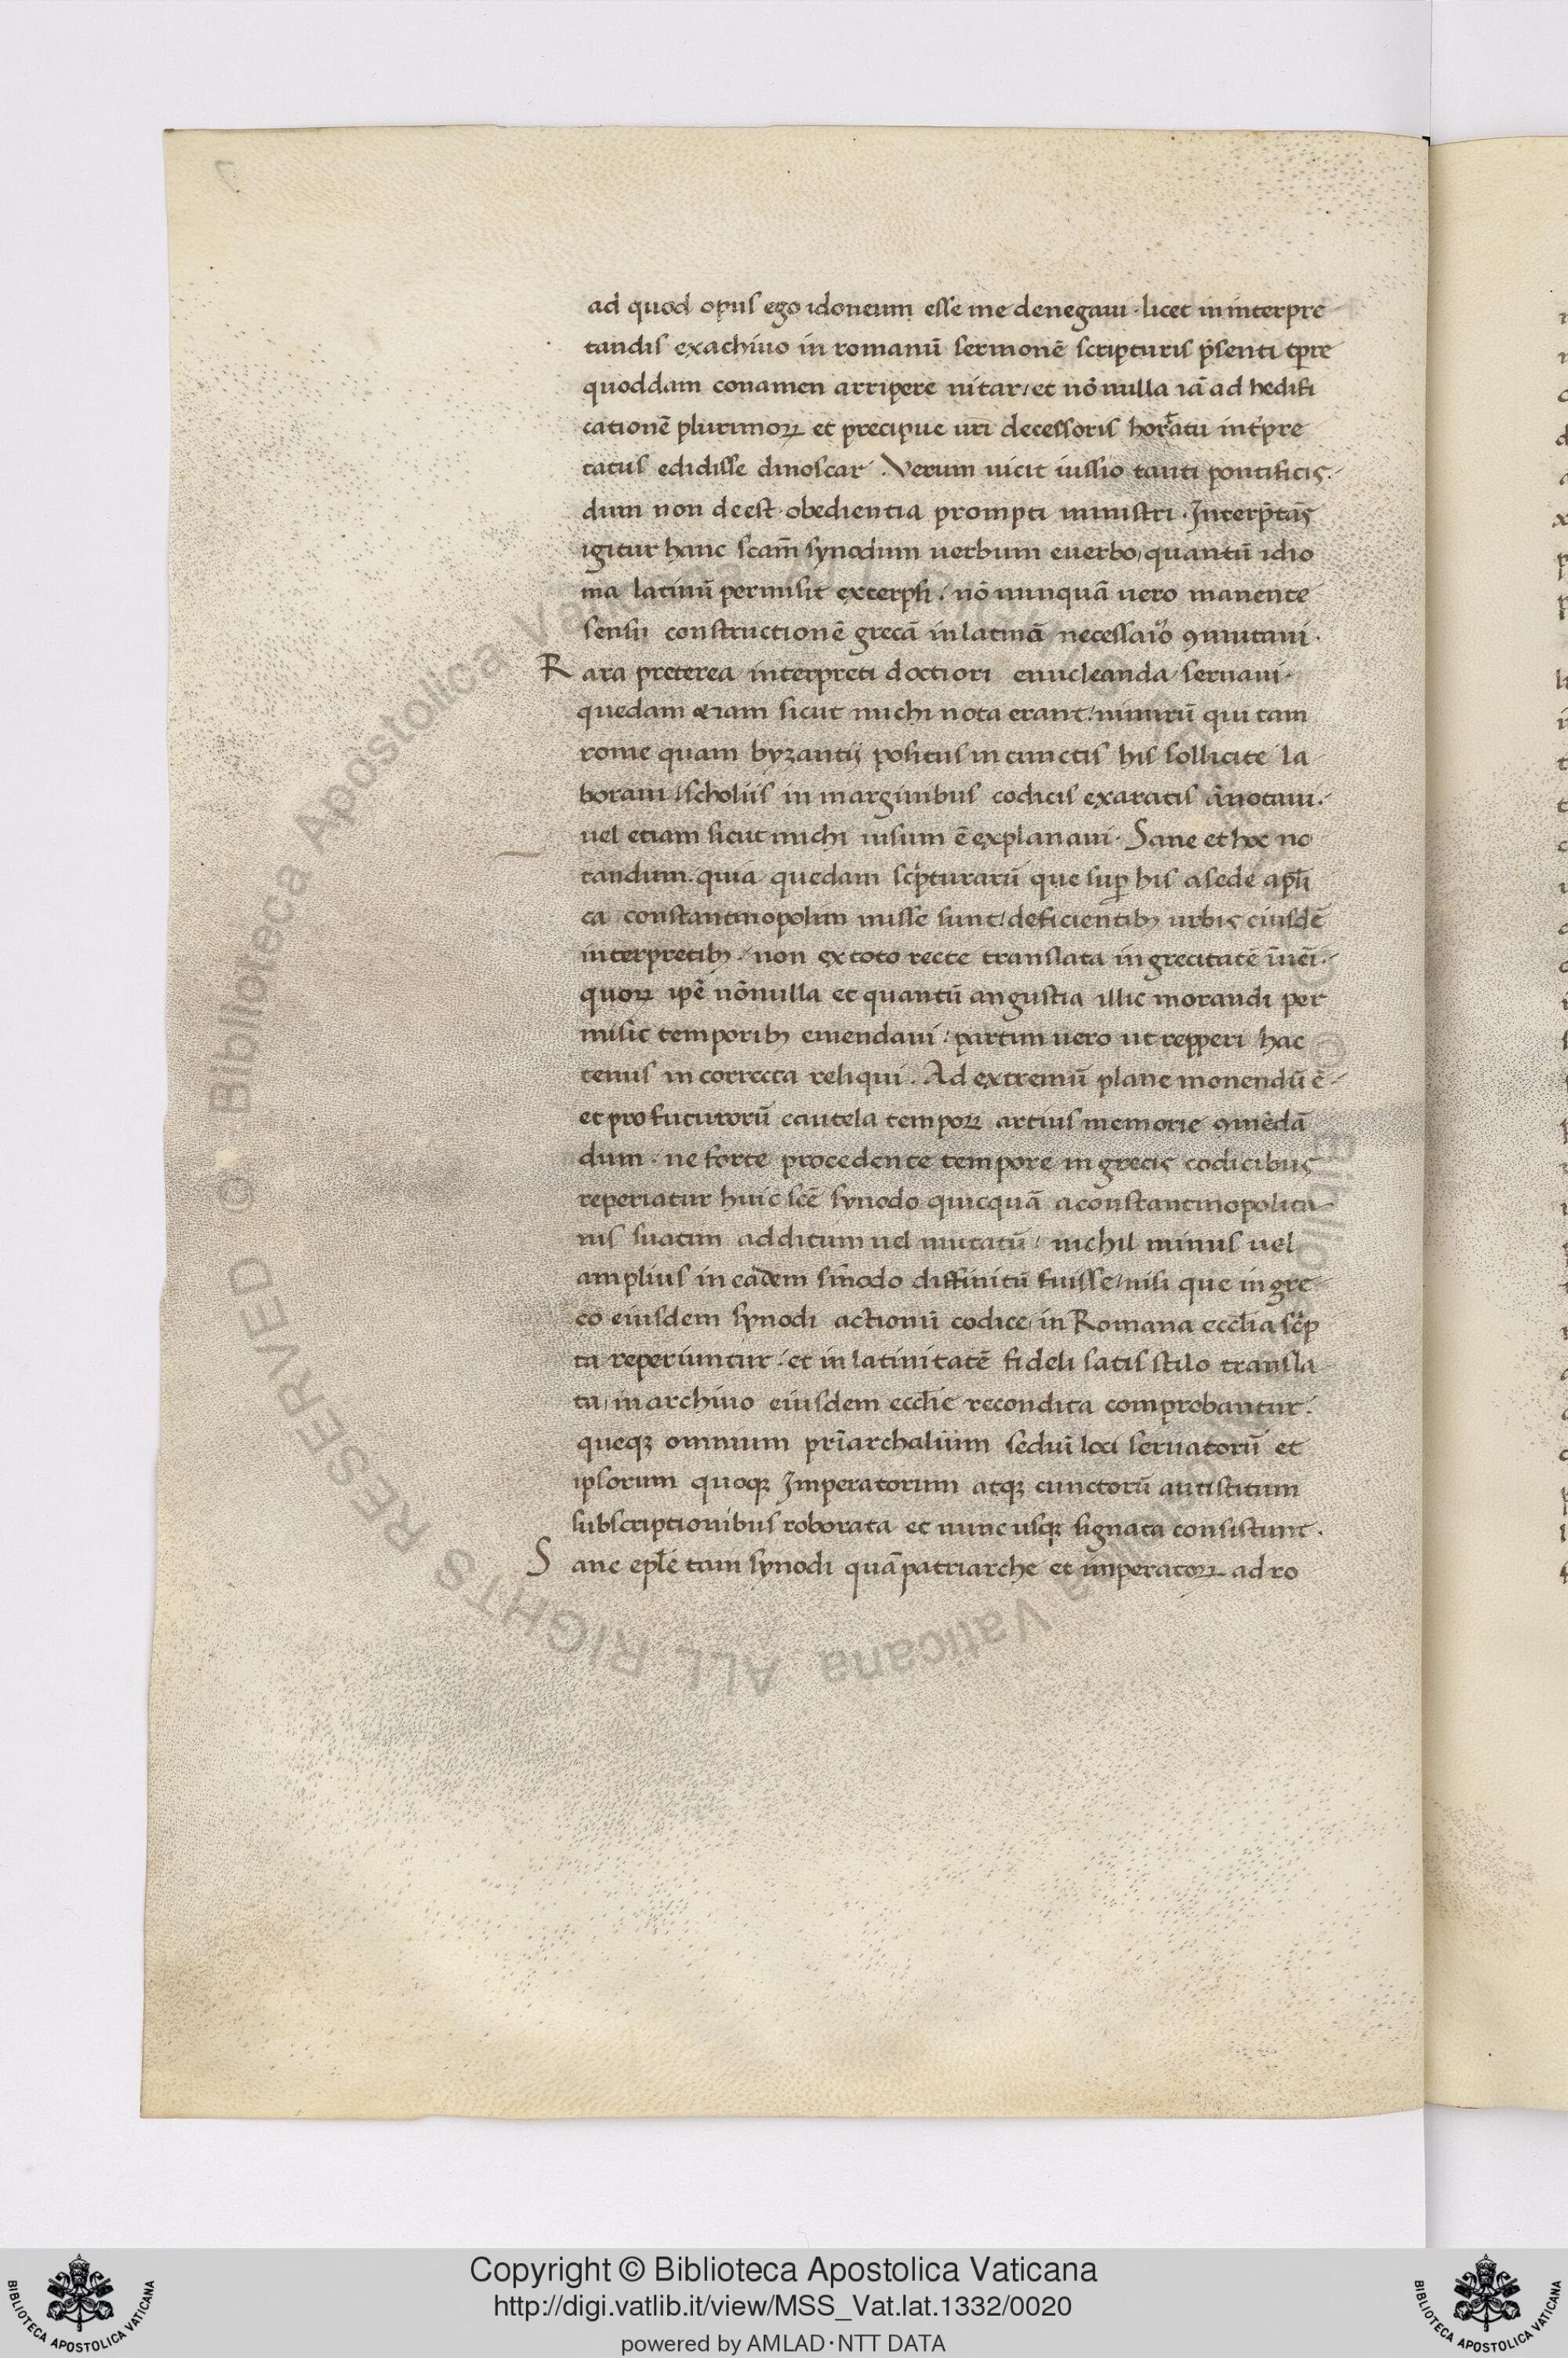 ad quod opus ego idoneum esse me denegaui · licet in interpre
tandis exachiuo in romanū sermonē scripturis p̄senti tp̄re
quoddam conamen arripere nitar / et nō nulla iā ad hedifi
cationē plurimoꝝ et precipue ur̄i decessoris horatu int̄pre
tatus edidisse dinoscar · Verum uicit iussio tanti pontificis ·
dum non deest · obedientia prompti ministri · Interp̄tās
igitur hanc scam̄ synodum uerbum euerbo, quantū idio
ma latinū permisit excerpsi · nō nunquā uero manente
sensu constructionē grecā in latinā necessaīo ꝯmutaui ·
R ara preterea interpreti doctiori enucleanda seruaui ·
quedam etiam sicut michi nota erant / nimirū qui tam
rome quam byzantij positus in cunctis his sollicite la
boraui / scholiis in marginibus codicis exaratis ānotaui ·
uel etiam sicut michi uisum ē explanaui · Sane et hoc no
tandum · quia quedam scp̄turarū que sup̱ his a sede apl̄i
ca constantinopolim misse sunt / deficientibꝫ urbis eiusdē
interpretibꝫ · non ex toto recte translata in grecitatē īuēi ·
quoꝝ ip̄e nōnulla et quantū angustia illic morandi per
misit temporibꝫ emendaui / partim uero ut repperi hac
tenus in correcta reliqui · Ad extremū plane monendū ē
et pro futurorū cautela tempoꝝ artius memorie ꝯmēdā
dum · ne forte procedente tempore in grecis codicibus
reperiatur huic scē synodo quicquā a constantinopolita
nis suatim additum uel mutatū / nichil minus uel
amplius in eadem sīnodo diffinitū fuisse / nisi que in gre
co eiusdem synodi actionū codice, in Romana eccl̄ia sc̄p
ta reperiuntur / et in latinitatē fideli satis stilo transla
ta, in archiuo eiusdem eccl̄ie recondita comprobantur ·
queqꝫ omnium pr̄iarchalium sediū loci seruatorū et
ipsorum quoqꝫ Imperatorum atqꝫ cunctorū antistitum
subscriptionibus roborata et nunc usqꝫ signata consistunt ·
S ane epl̄e tam synodi quā patriarche et imperatoꝝ ad ro
Copyright © Biblioteca Apostolica Vaticana
http://digi.vatlib.it/view/MSS_Vat.lat.1332/0020
powered by AMLAD·NTT DATA
BIBLIOTECA APOSTOLICA VATICANA
BIBLIOTECA APOSTOLICA VATICANA
© Biblioteca Apostolica Vaticana ALL RIGHTS RESERVED